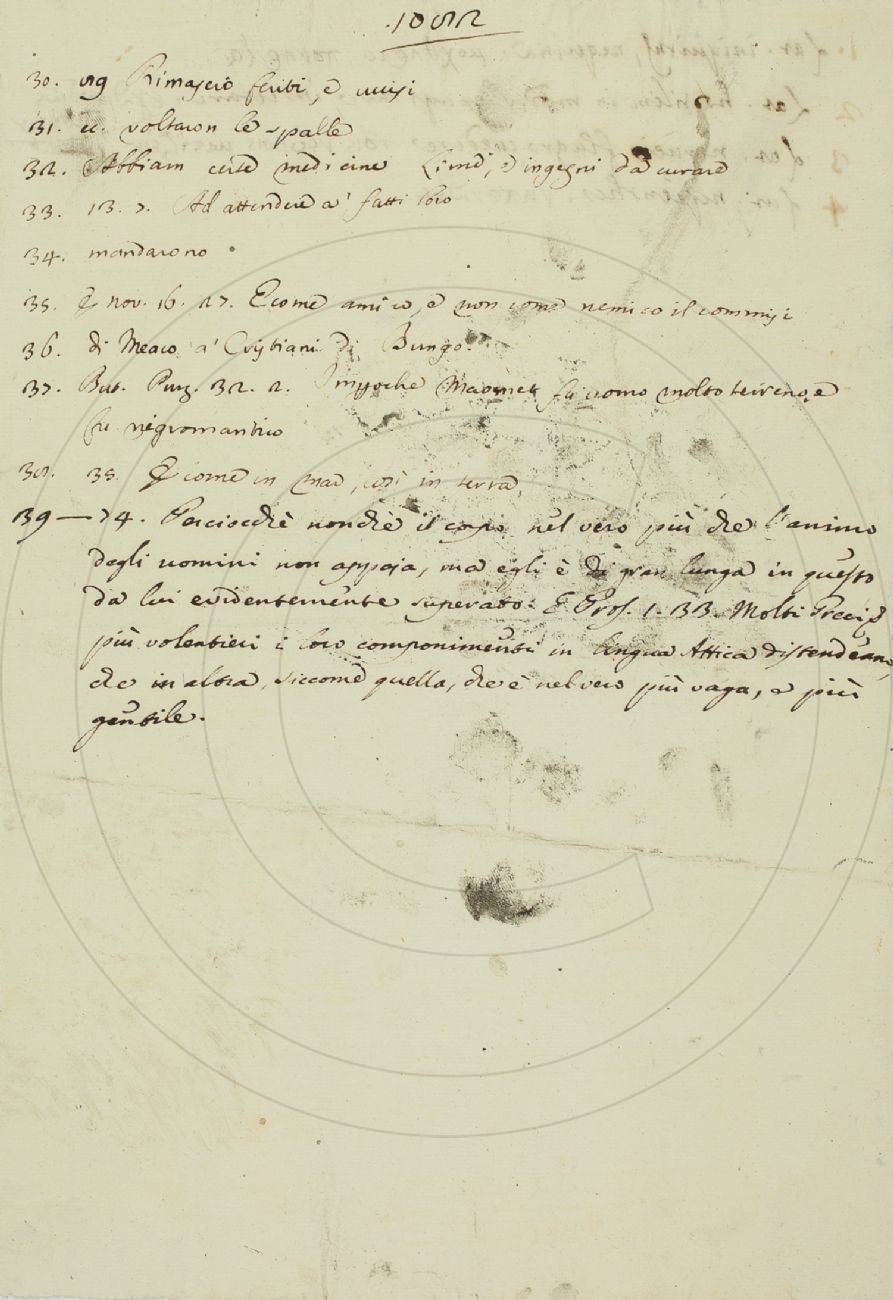 1082
30. 89 Rimascro feriti, e uccisi
31. ec. voltaron le spalle
32. Abbiam cerse medicine Limei, e ingegni da curare
33. 13. 7. Ad attendere a' fatti loro
34. mandarono
35. E nov. 16. 27. E come amico, e non come nemico il commisi
36. di Meaco a' Cristiani di Bungo.
37. But. Purg. 32. 2. Impoche Maomet fu uomo molto terreno, e
fu negromantico
38. 35. E come in mar, così in terra,
39 — 74. Perciocchè non che il corpo nel vero più che l'animo
degli uomini non appaja, ma egli è di gran lunga in questo
da lui evidentemente superato. E Pros. 1. 33. Molti Greci
più volentieri i loro componimenti in lingua Attica distendeano,
che in altra, siccome quella, che è nel vero più vaga, e più
gentile.